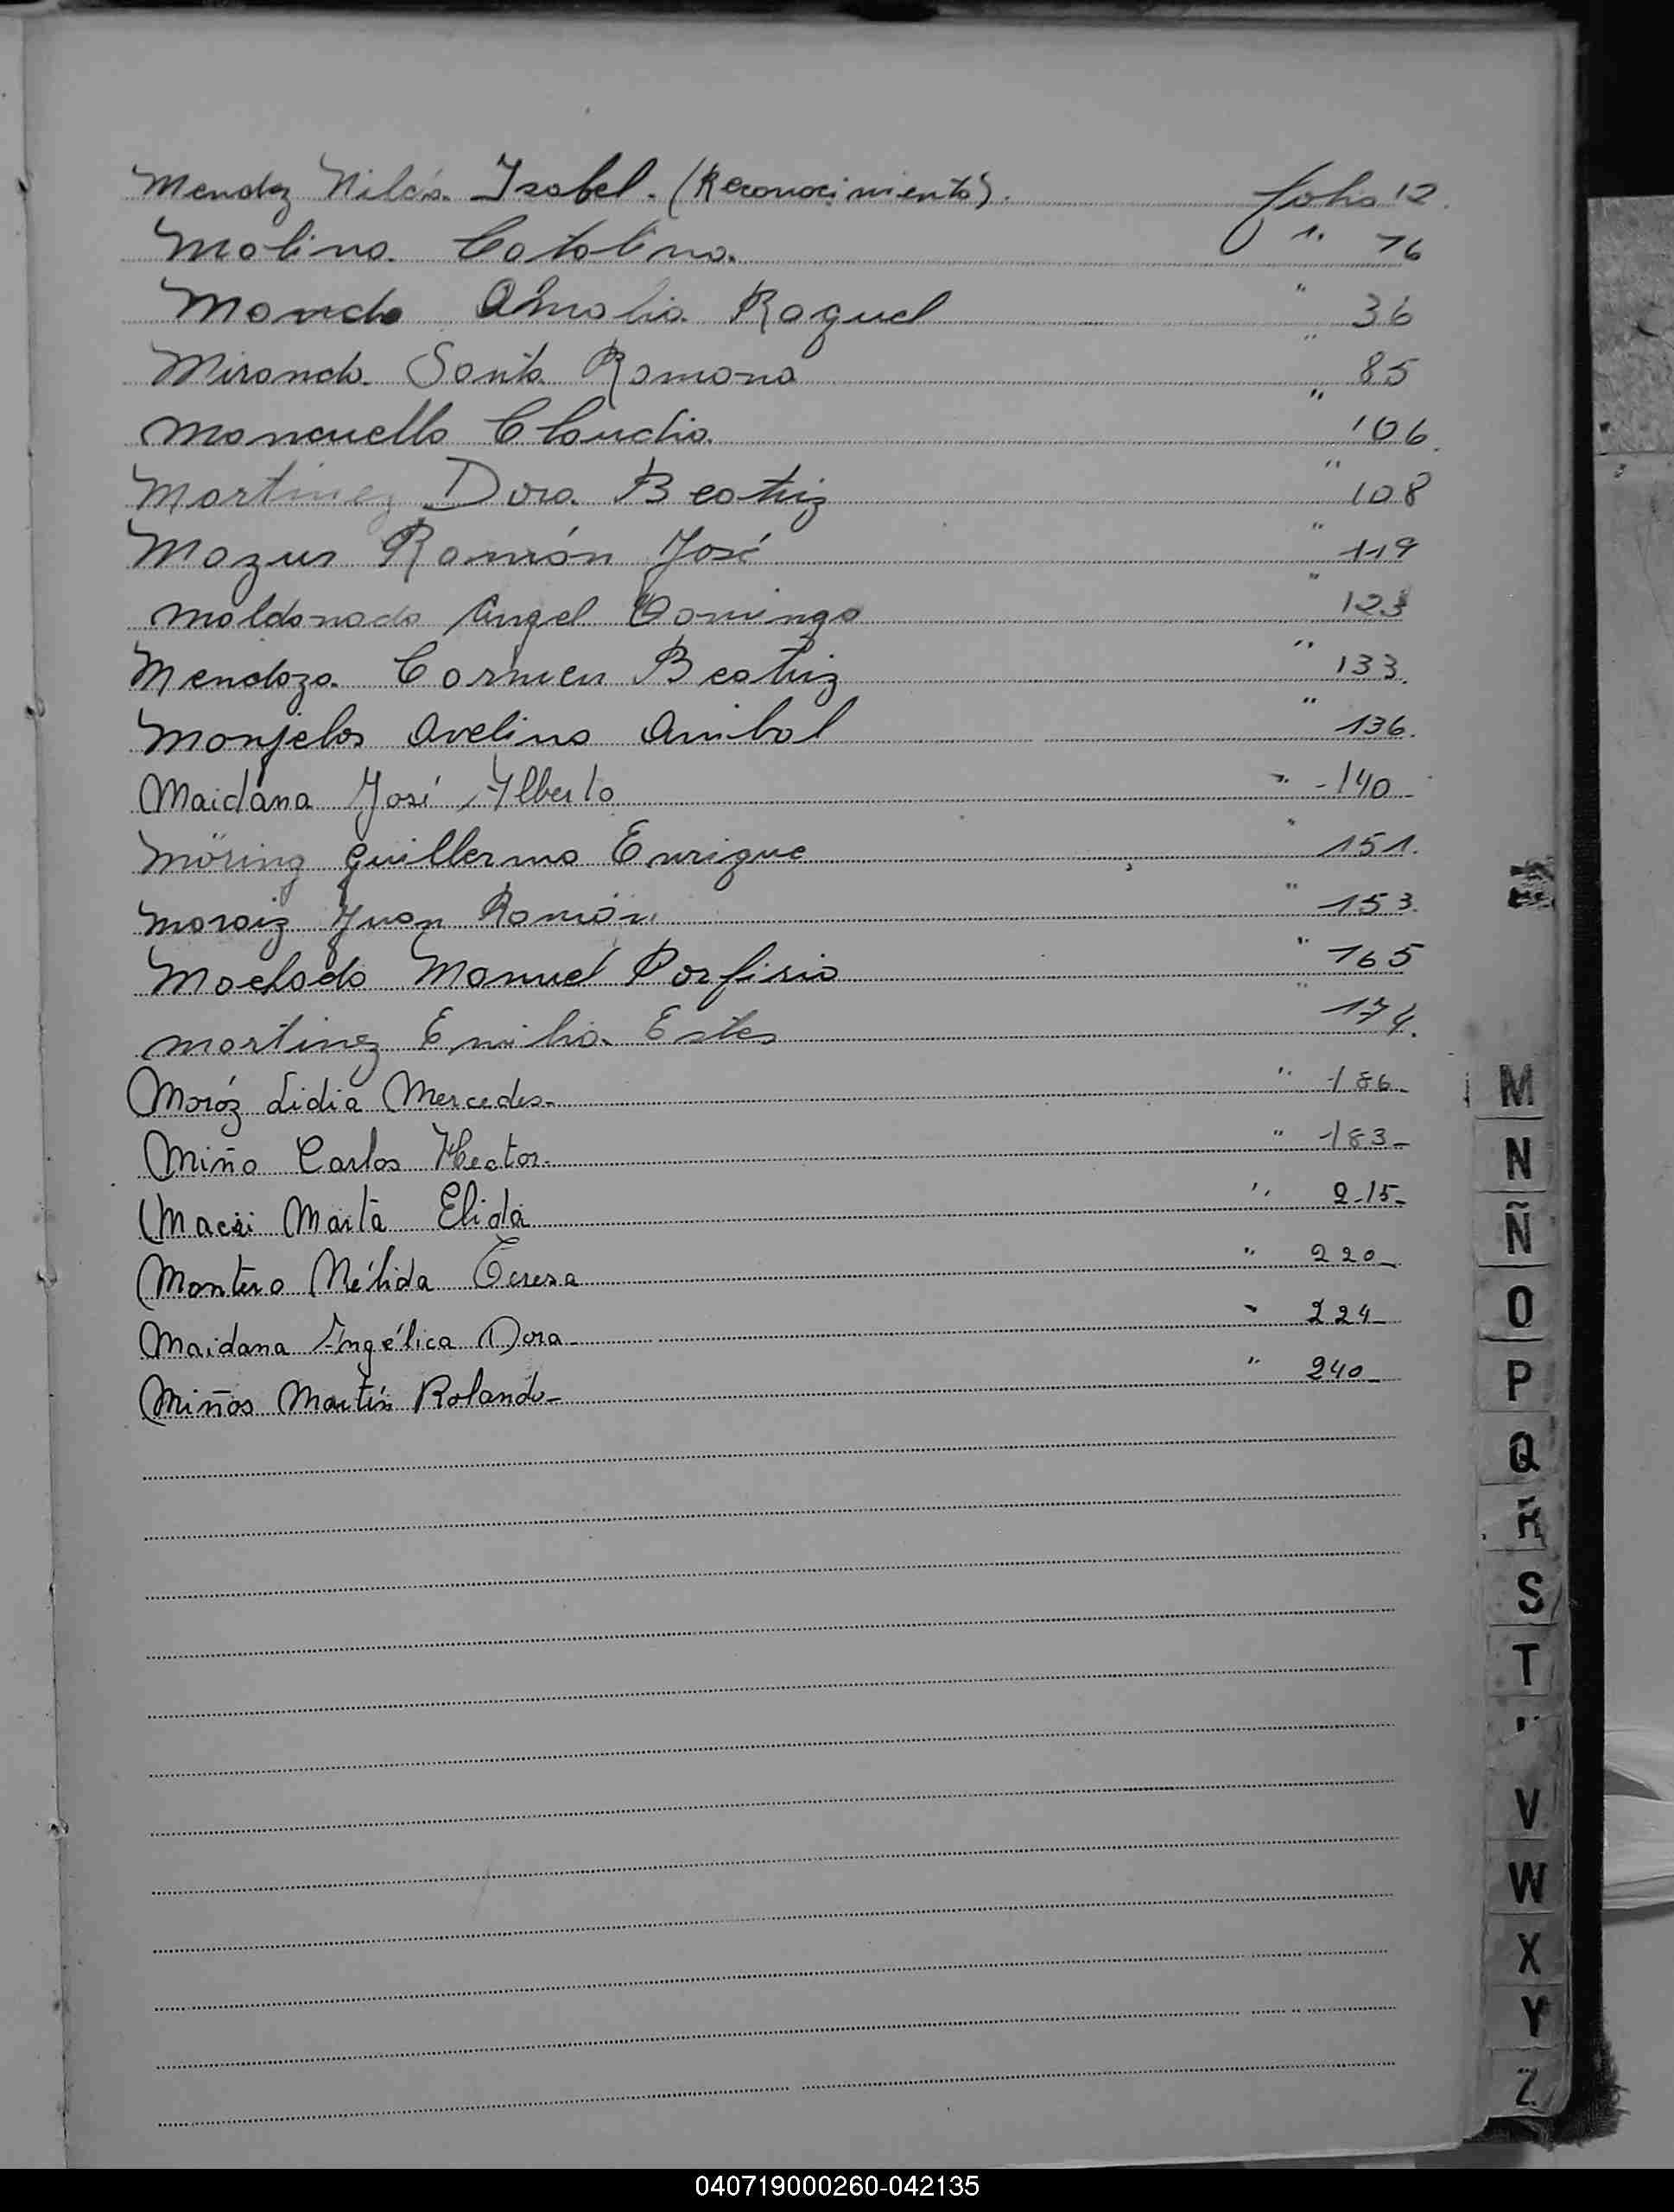 Mendez Nilda Isabel. (Reconocimiento). folio 12.
Molina Catalina. " 16
Amalia Raquel " 36
Miranda Santa Ramona " 85
Mancuello Claudia " 106.
Martinez Dora Beatriz " 108
Mazur Ramón José " 119
Maldonado Angel Domingo " 123
Mendoza Carmen Beatriz " 133.
Monjelos Avelino Anibal " 136.
Maidana José Alberto " -140-
Möring Guillermo Enrique " 151.
Moraiz Juan Ramón " 153.
Machado Manuel Porfirio " 165
Martinez Emilia Ester " 174.
Moróz Lidia Mercedes- " 186-
Miño Carlos Hector- " 183-
Macri Marta Elida " 215-
Montero Nélida Teresa " 220-
Maidana Angélica Dora- " 224-
Miños Martín Rolando- " 240-
M
N
Ñ
O
P
Q
R
S
T
V
W
X
Y
Z
040719000260-042135